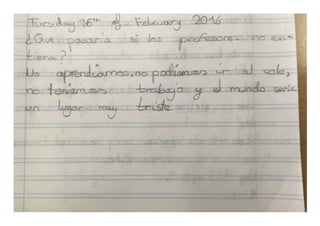 Tuesday 16th of February 2016
¿Que pasaria si los profesores no exis-
tiera?
No aprendiamos, no podiamos ir al cole,
no teniamos trabajo y el mundo seria
un lugar muy triste